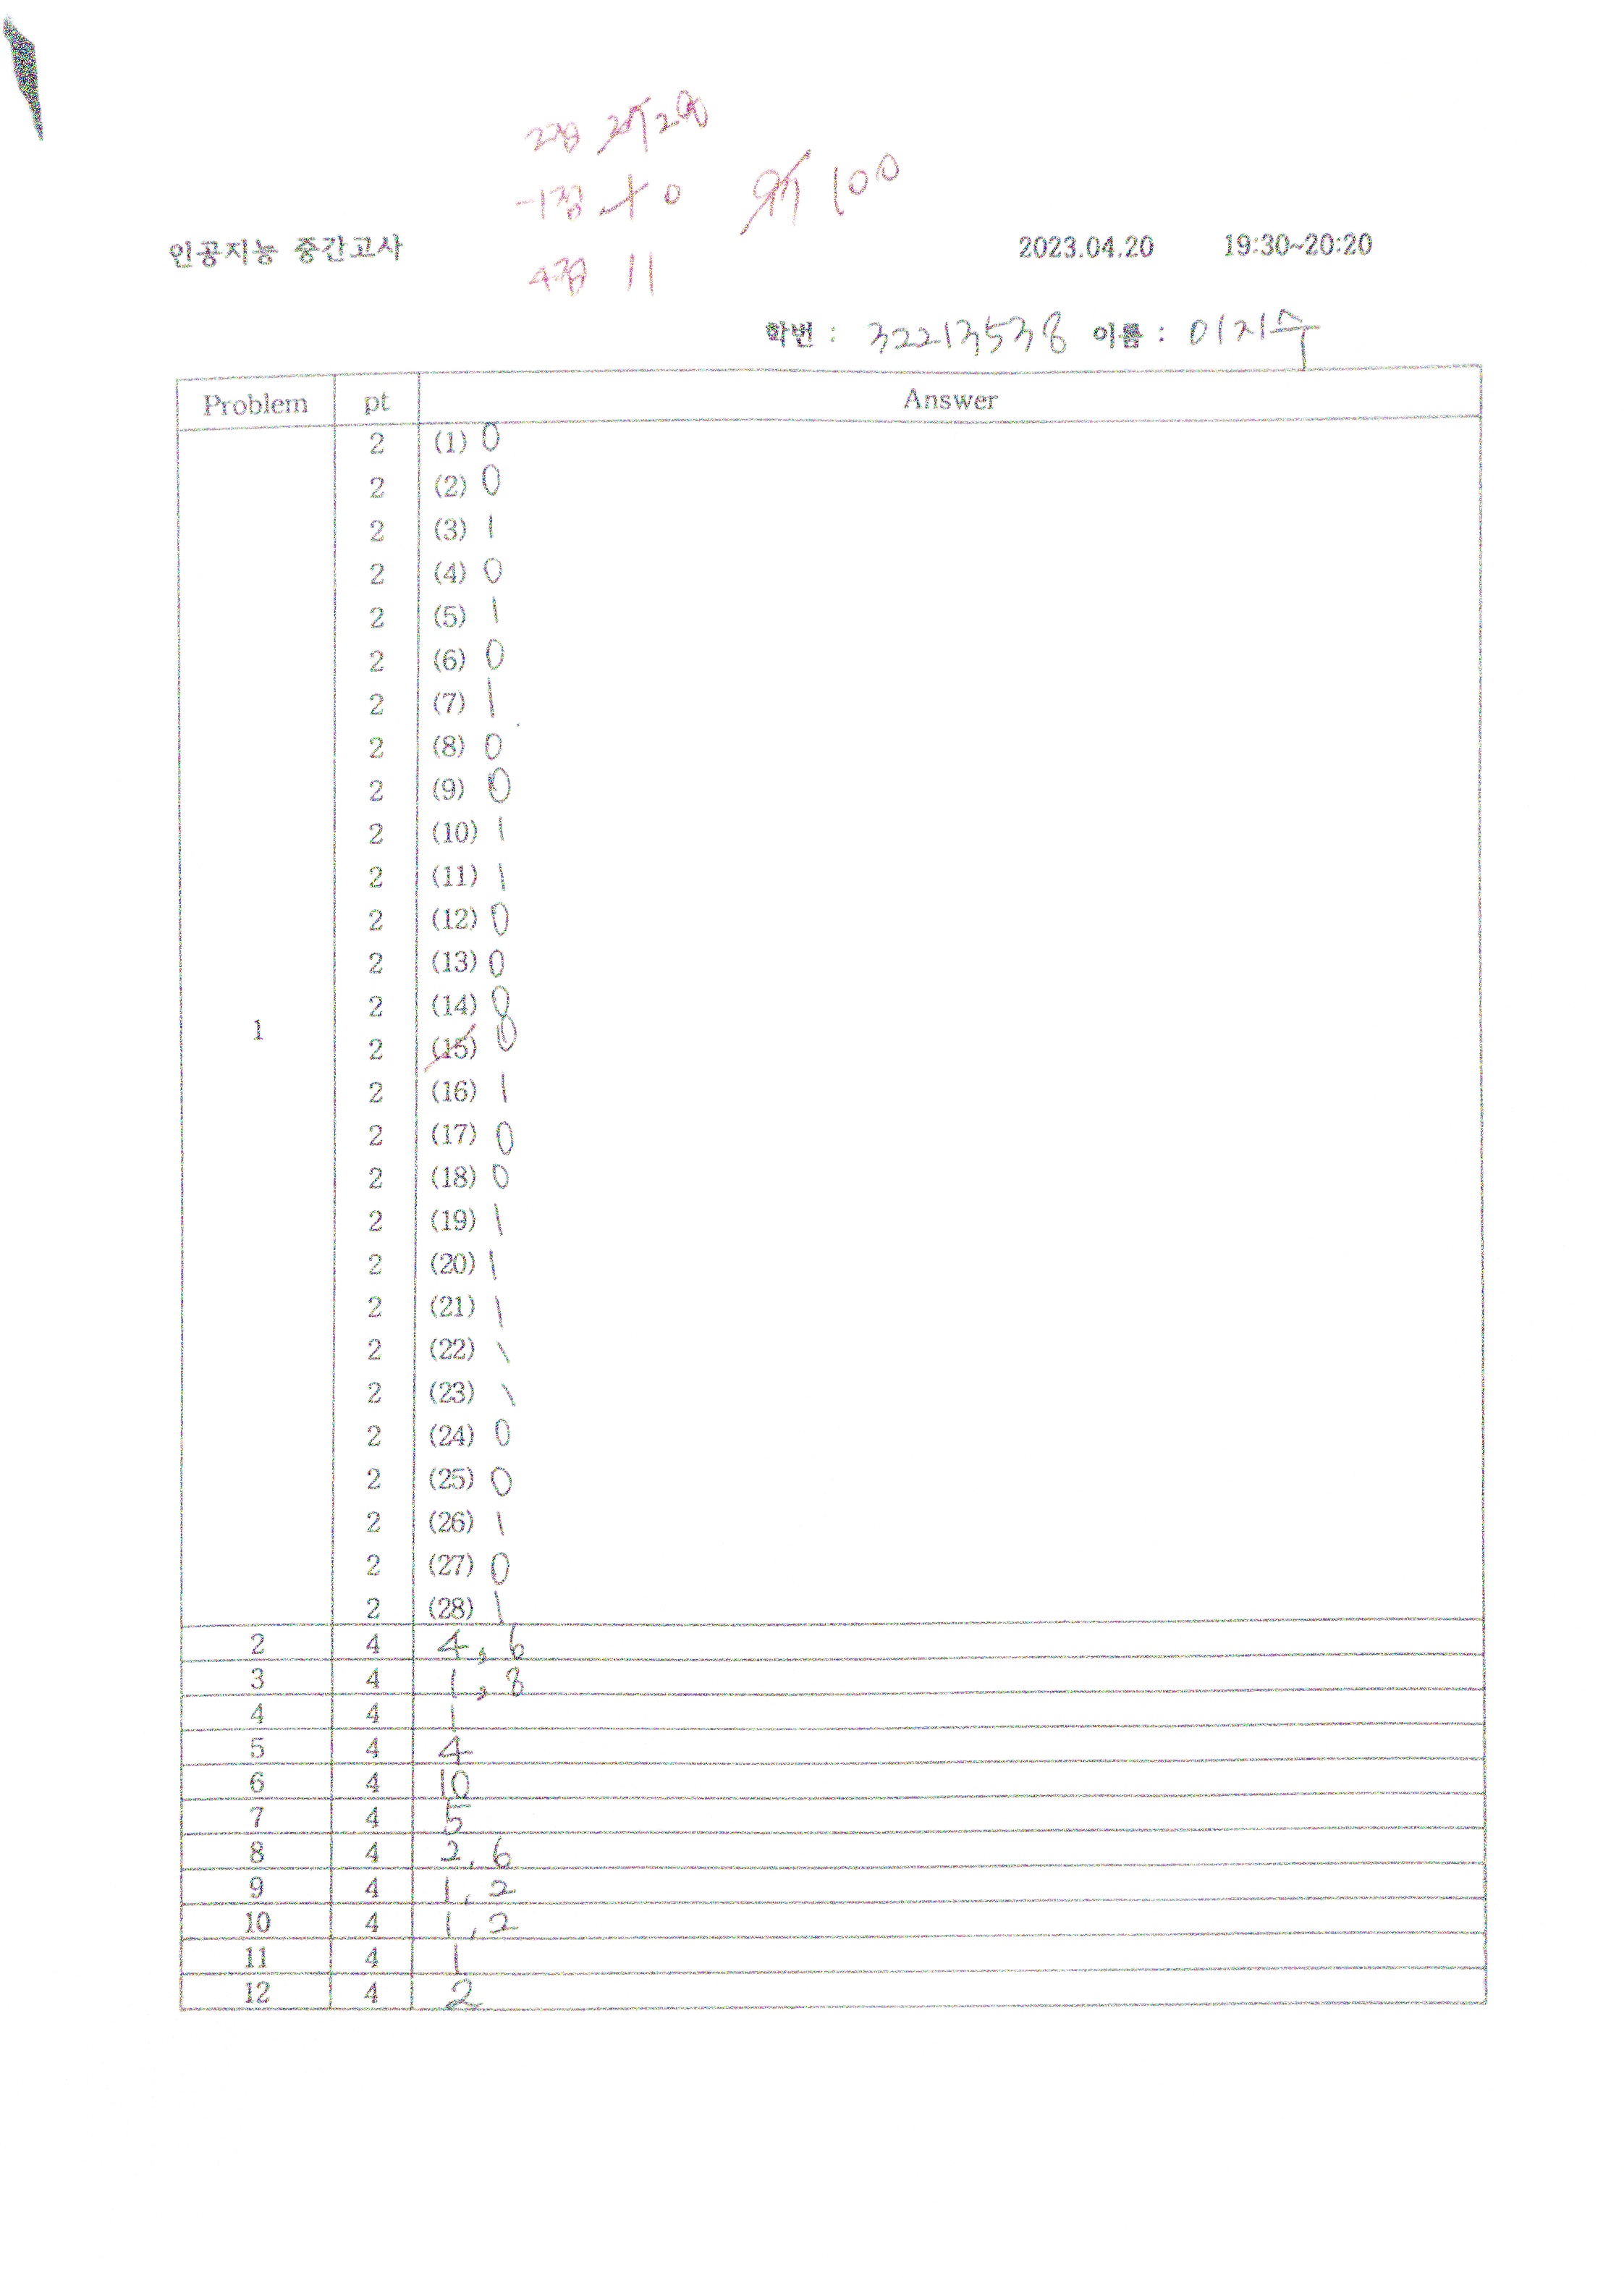 2점 28
-1점 0 100
인공지능 중간고사 2023.04.20 19:30~20:20
4점 11
학번 : 32213538 이름 : 이지수
Problem pt Answer
1
2 (1) 0
2 (2) 0
2 (3) 1
2 (4) 0
2 (5) 1
2 (6) 0
2 (7) 1
2 (8) 0
2 (9) 0
2 (10) 1
2 (11) 1
2 (12) 0
2 (13) 0
2 (14) 0
2 (15) 0
2 (16) 1
2 (17) 0
2 (18) 0
2 (19) 1
2 (20) 1
2 (21) 1
2 (22) 1
2 (23) 1
2 (24) 0
2 (25) 0
2 (26) 1
2 (27) 0
2 (28) 1
2 4 4, 6
3 4 1, 8
4 4 1
5 4 4
6 4 10
7 4 5
8 4 2, 6
9 4 1, 2
10 4 1, 2
11 4 1
12 4 2